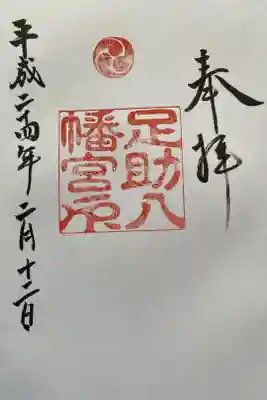 奉拝
足助八
幡宮印
平成二十四年二月十二日